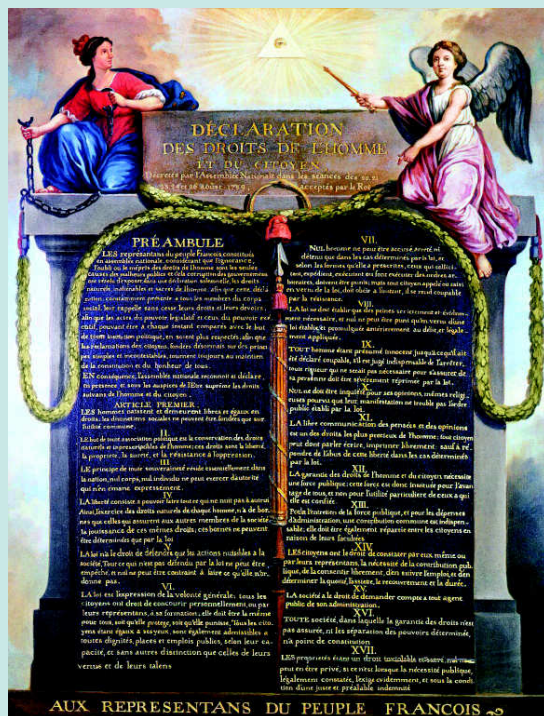 DÉCLARATION
DES DROITS DE L'HOMME
ET DU CITOYEN
Décrétés par l'Assemblée Nationale dans les séances des 20, 21
23, 24 et 26 août 1789, acceptés par le Roi
PRÉAMBULE
LES représentans du peuple François constitués
en assemblée nationale, considérant que l'ignorance,
l'oubli ou le mépris des droits de l'homme sont les seules
causes des malheurs publics et de la corruption des gouvernemens
ont résolu d'exposer dans une déclaration solemnelle, les droits
naturels, inaliénables et sacrés de l'homme: afin que cette décla
ration, constamment présente a tous les membres du corps
social, leur rappelle sans cesse leurs droits et leurs devoirs,
afin que les actes du pouvoir legislatif et ceux du pouvoir exé
cutif, pouvant être à chaque instant comparés avec le but
de toute institution politique, en soient plus respectés; afin que
les réclamations des citoyens, fondées désormais sur des princi
pes simples et incontestables, tournent toujours au maintien
de la constitution et du bonheur de tous.
EN conséquence, l'assemblée nationale reconnoit et déclare,
en presence et sous les auspices de l'Etre suprême les droits
suivans de l'homme et du citoyen.
ARTICLE PREMIER
LES hommes naissent et demeurent libres et égaux en
droits; les distinctions sociales ne peuvent être fondées que sur
l'utilité commune.
II.
LE but de toute association politique est la conservation des droits
naturels et imprescriptibles de l'homme; ces droits sont la liberté,
la propriété, la sureté, et la résistance à l'oppression.
III.
LE principe de toute souveraineté réside essentiellement dans
la nation, nul corps, nul individu ne peut exercer d'autorité
qui n'en émane expressement.
IV
LA liberté consiste a pouvoir faire tout ce qui ne nuit pas à autrui
Ainsi, l'exercice des droits naturels de chaque homme, n'a de bor-
nes que celles qui assurent aux autres membres de la société
la jouissance de ces mêmes droits; ces bornes ne peuvent
être déterminées que par la loi
V.
LA loi n'a le droit de défendre que les actions nuisibles à la
société. Tout ce qui n'est pas défendu par la loi ne peut être
empêché, et nul ne peut être contraint à faire ce qu'elle n'or-
donne pas.
VI.
LA loi est l'expression de la volonté générale; tous les
citoyens ont droit de concourir personnellement, ou par
leurs représentans, à sa formation; elle doit être la même
pour tous, soit qu'elle protege, soit qu'elle punisse. Tous les cito-
yens étant égaux à ses yeux, sont également admissibles à
toutes dignités, places et emplois publics, selon leur ca-
pacité, et sans autres distinction que celles de leurs
vertus et de leurs talens
VII.
NUL homme ne peut être accusé, arreté, ni
détenu que dans les cas déterminés par la loi, et
selon les formes qu'elle a prescrites, ceux qui sollici-
tent, expédient, exécutent ou font exécuter des ordres ar-
bitraires, doivent être punis; mais tout citoyen appelé ou saisi
en vertu de la loi, doit obéir a l'instant, il se rend coupable
par la résistance.
VIII.
LA loi ne doit établir que des peines strictement et évidem-
ment nécessaire, et nul ne peut être puni qu'en vertu d'une
loi établie et promulguée antérierement au délit, et légale-
ment appliquée.
IX.
TOUT homme étant présumé innocent jusqu'a ce qu'il ait
été déclaré coupable, s'il est jugé indispensable de l'arrêter,
toute rigueur qui ne serait pas nécessaire pour s'assurer de
sa personne doit être sévèrement réprimée par la loi.
NUL ne doit être inquiété pour ses opinions, mêmes religi-
euses pourvu que leur manifestation ne trouble pas l'ordre
public établi par la loi.
XI.
LA libre communication des pensées et des opinions
est un des droits les plus precieux de l'homme; tout citoyen
peut donc parler écrire, imprimer librement: sauf à ré-
pondre de l'abus de cette liberté dans les cas déterminés
par la loi.
XII.
LA garantie des droits de l'homme et du citoyen nécessite
une force publique; cette force est donc instituée pour l'avan-
tage de tous, et non pour l'utilité particuliere de ceux a qui
elle est confiée.
XIII.
Pour l'entretien de la force publique, et pour les dépenses
d'administration, une contribution commune est indispen-
sable; elle doit être également répartie entre les citoyens en
raison de leurs facultées
XIV.
LES citoyens ont le droit de constater par eux même ou
par leurs représentans, la nécessité de la contribution pub
lique, de la consentir librement, d'en suivre l'emploi, et d'en
déterminer la quotité, l'assiette, le recouvrement et la durée.
XV.
LA société a le droit de demander compte a tout agent
public de son administration.
XVI.
TOUTE société, dans laquelle la garantie des droits n'est
pas assurée, ni les séparation des pouvoirs déterminée,
n'a point de constitution
XVII.
LES propriétés étant un droit inviolable et sacré, nul ne
peut en être privé, si ce n'est lorsque la nécessité publique,
légalement constatée, l'exige evidemment, et sous la condi
tion d'une juste et préalable indemnité
AUX REPRESENTANS DU PEUPLE FRANCOIS